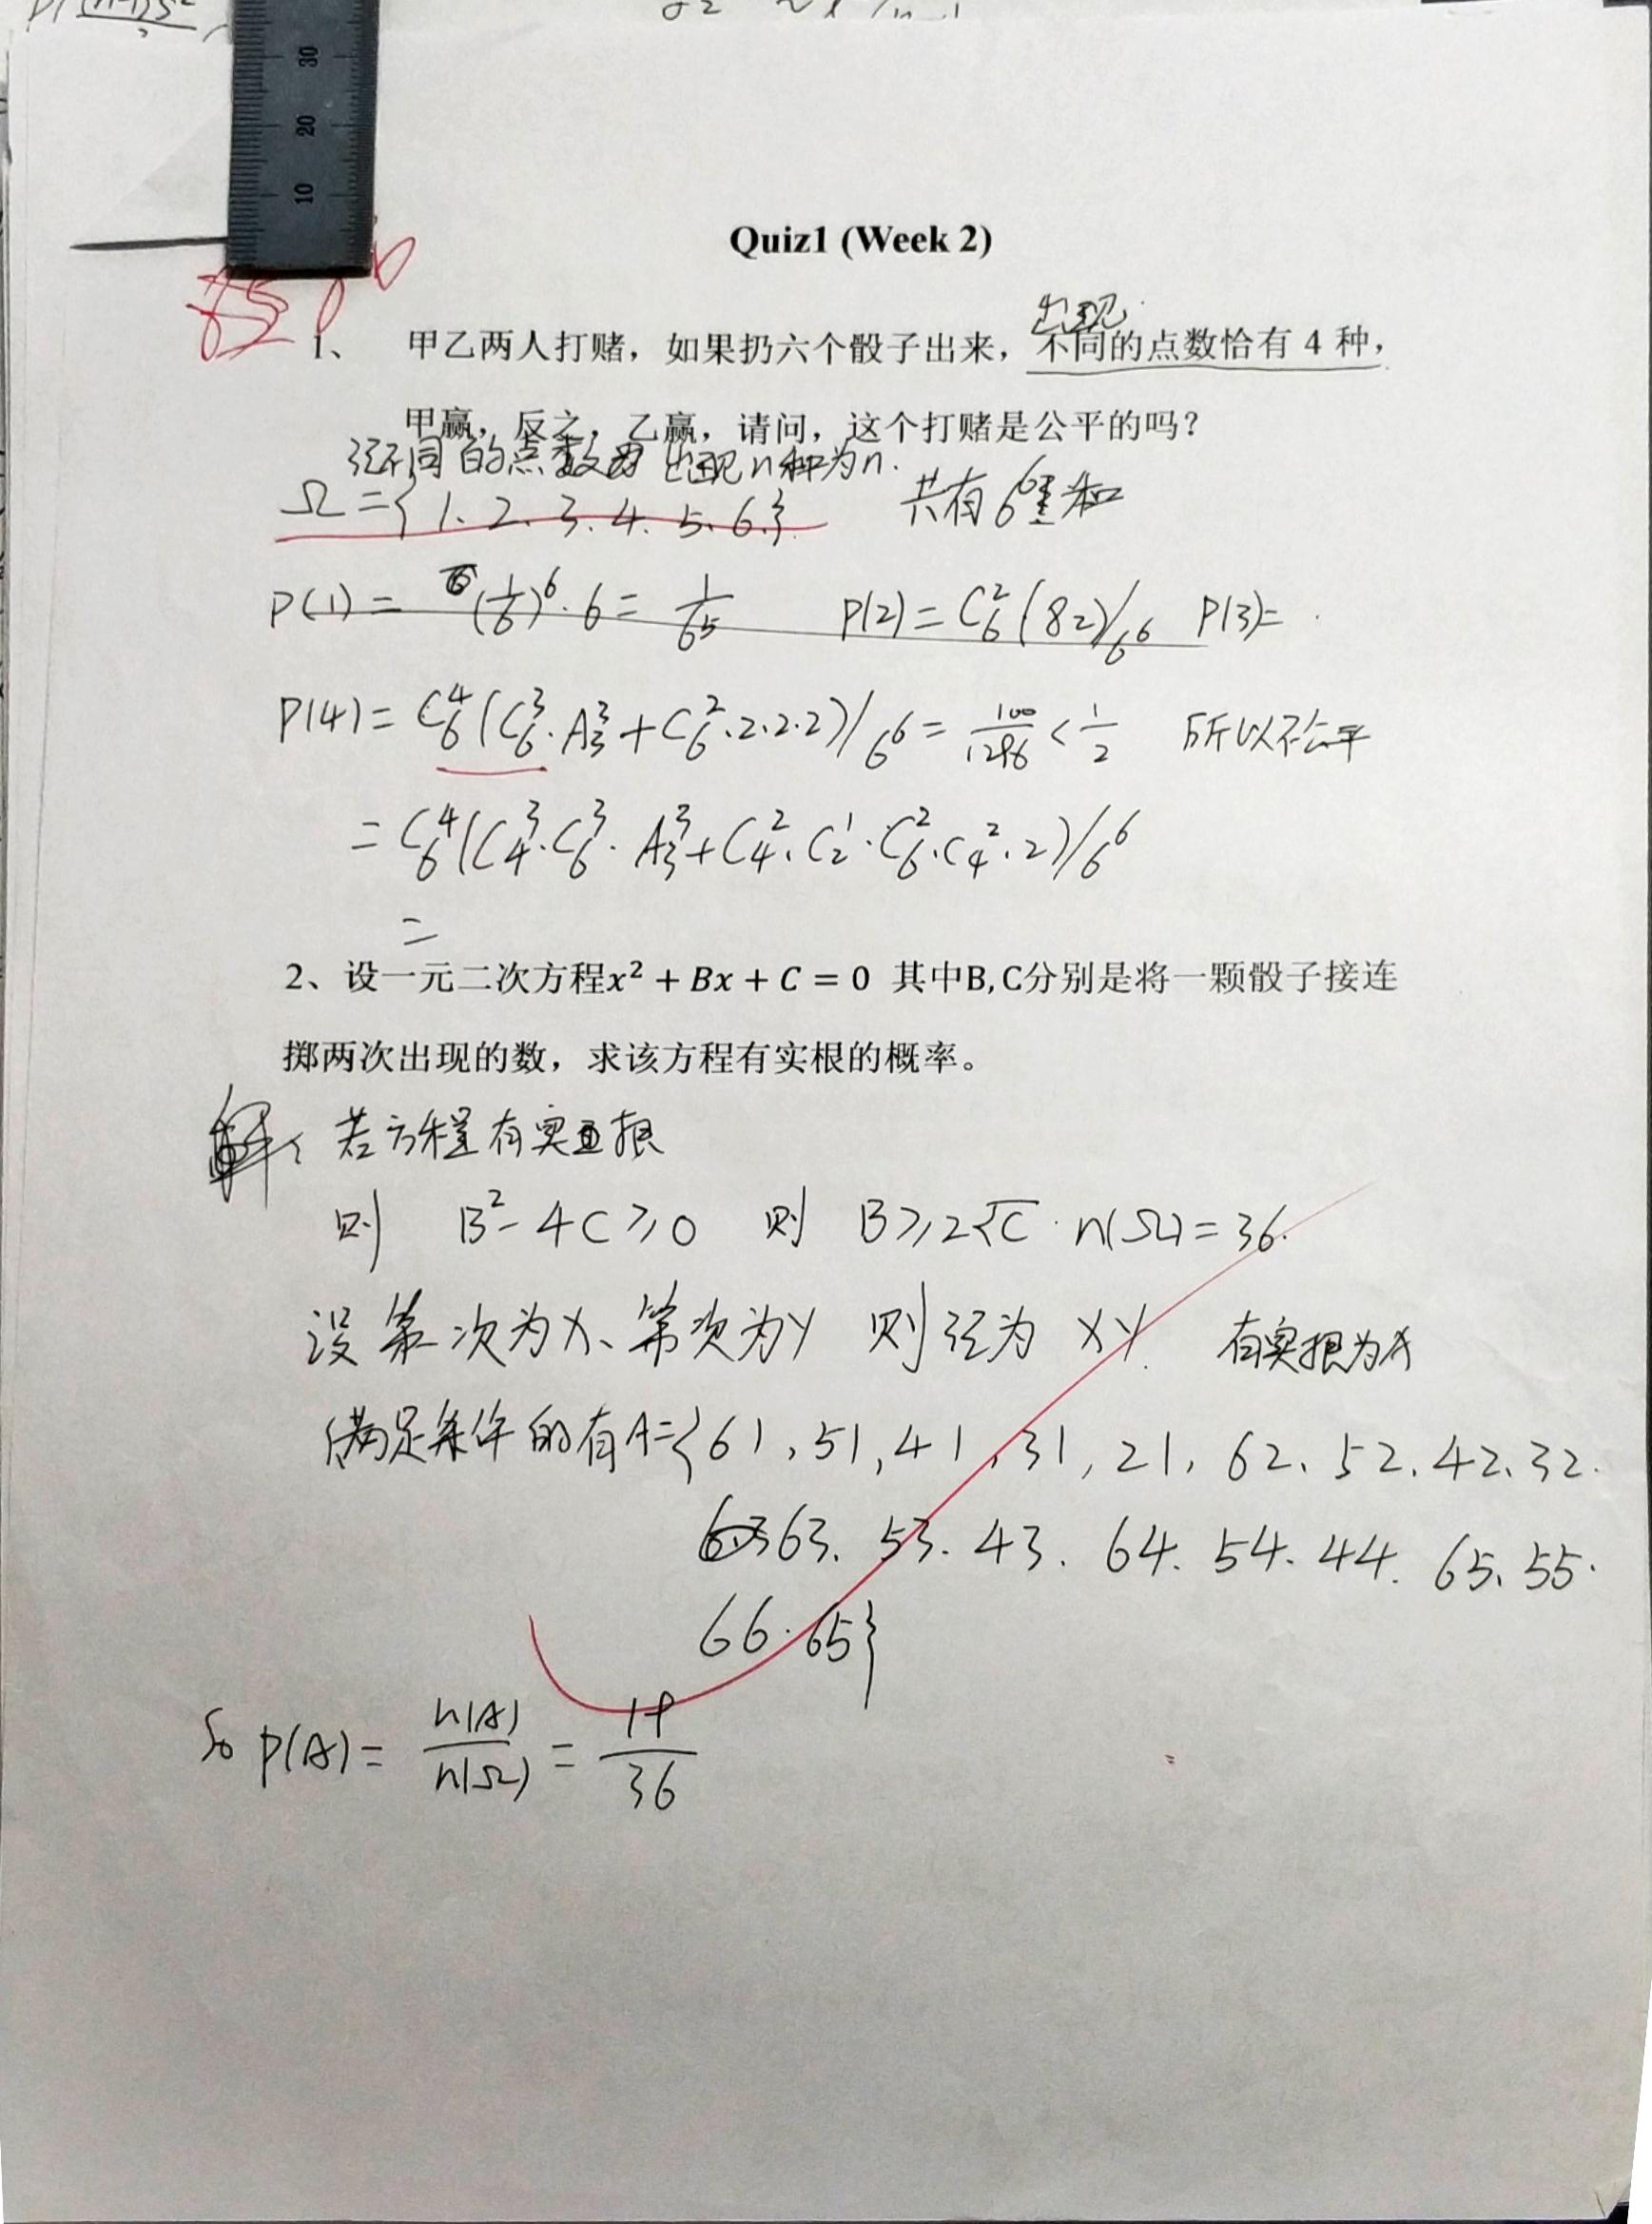 30
20
10
Quiz1 (Week 2)
出现
1、 甲乙两人打赌，如果扔六个骰子出来，不同的点数恰有 4 种，
甲赢，反之，乙赢，请问，这个打赌是公平的吗？
记不同的点数 出现n种为n.
Ω={1、2、3、4、5、6.} 共有6⁶种
P(1)= (1/6)⁶·6= 1/6⁵ P(2)=C₆²(82)/6⁶ P(3)=
P(4)= C₆⁴(C₆³·A₃³+C₆²·2·2·2)/6⁶= 100/1296 < 1/2 所以不公平
= C₆⁴(C₄³·C₆³·A₃³+C₄²·C₂¹·C₆²·C₄²·2)/6⁶
=
2、设一元二次方程x² + Bx + C = 0 其中B,C分别是将一颗骰子接连
掷两次出现的数，求该方程有实根的概率。
解: 若方程有实根
则 B²-4C≥0 则 B≥2√C · n(Ω)=36.
设第一次为X、第二次为Y 则记为 XY. 有实根为A
满足条件的有A={61,51,41,31,21,62、52、42、32.
63、53.43.64.54.44.65、55.
66.65}
So P(A)= n(A)/n(Ω) = 19/36